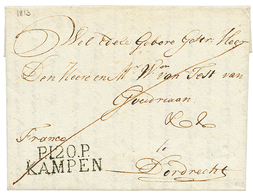 1813
Wel Edele Gebore Gestr: Heer
Den Heere en Mr Wm van Test van
Goudriaan
&c &c
Franco
te
P.120.P.
KAMPEN
Dordrecht